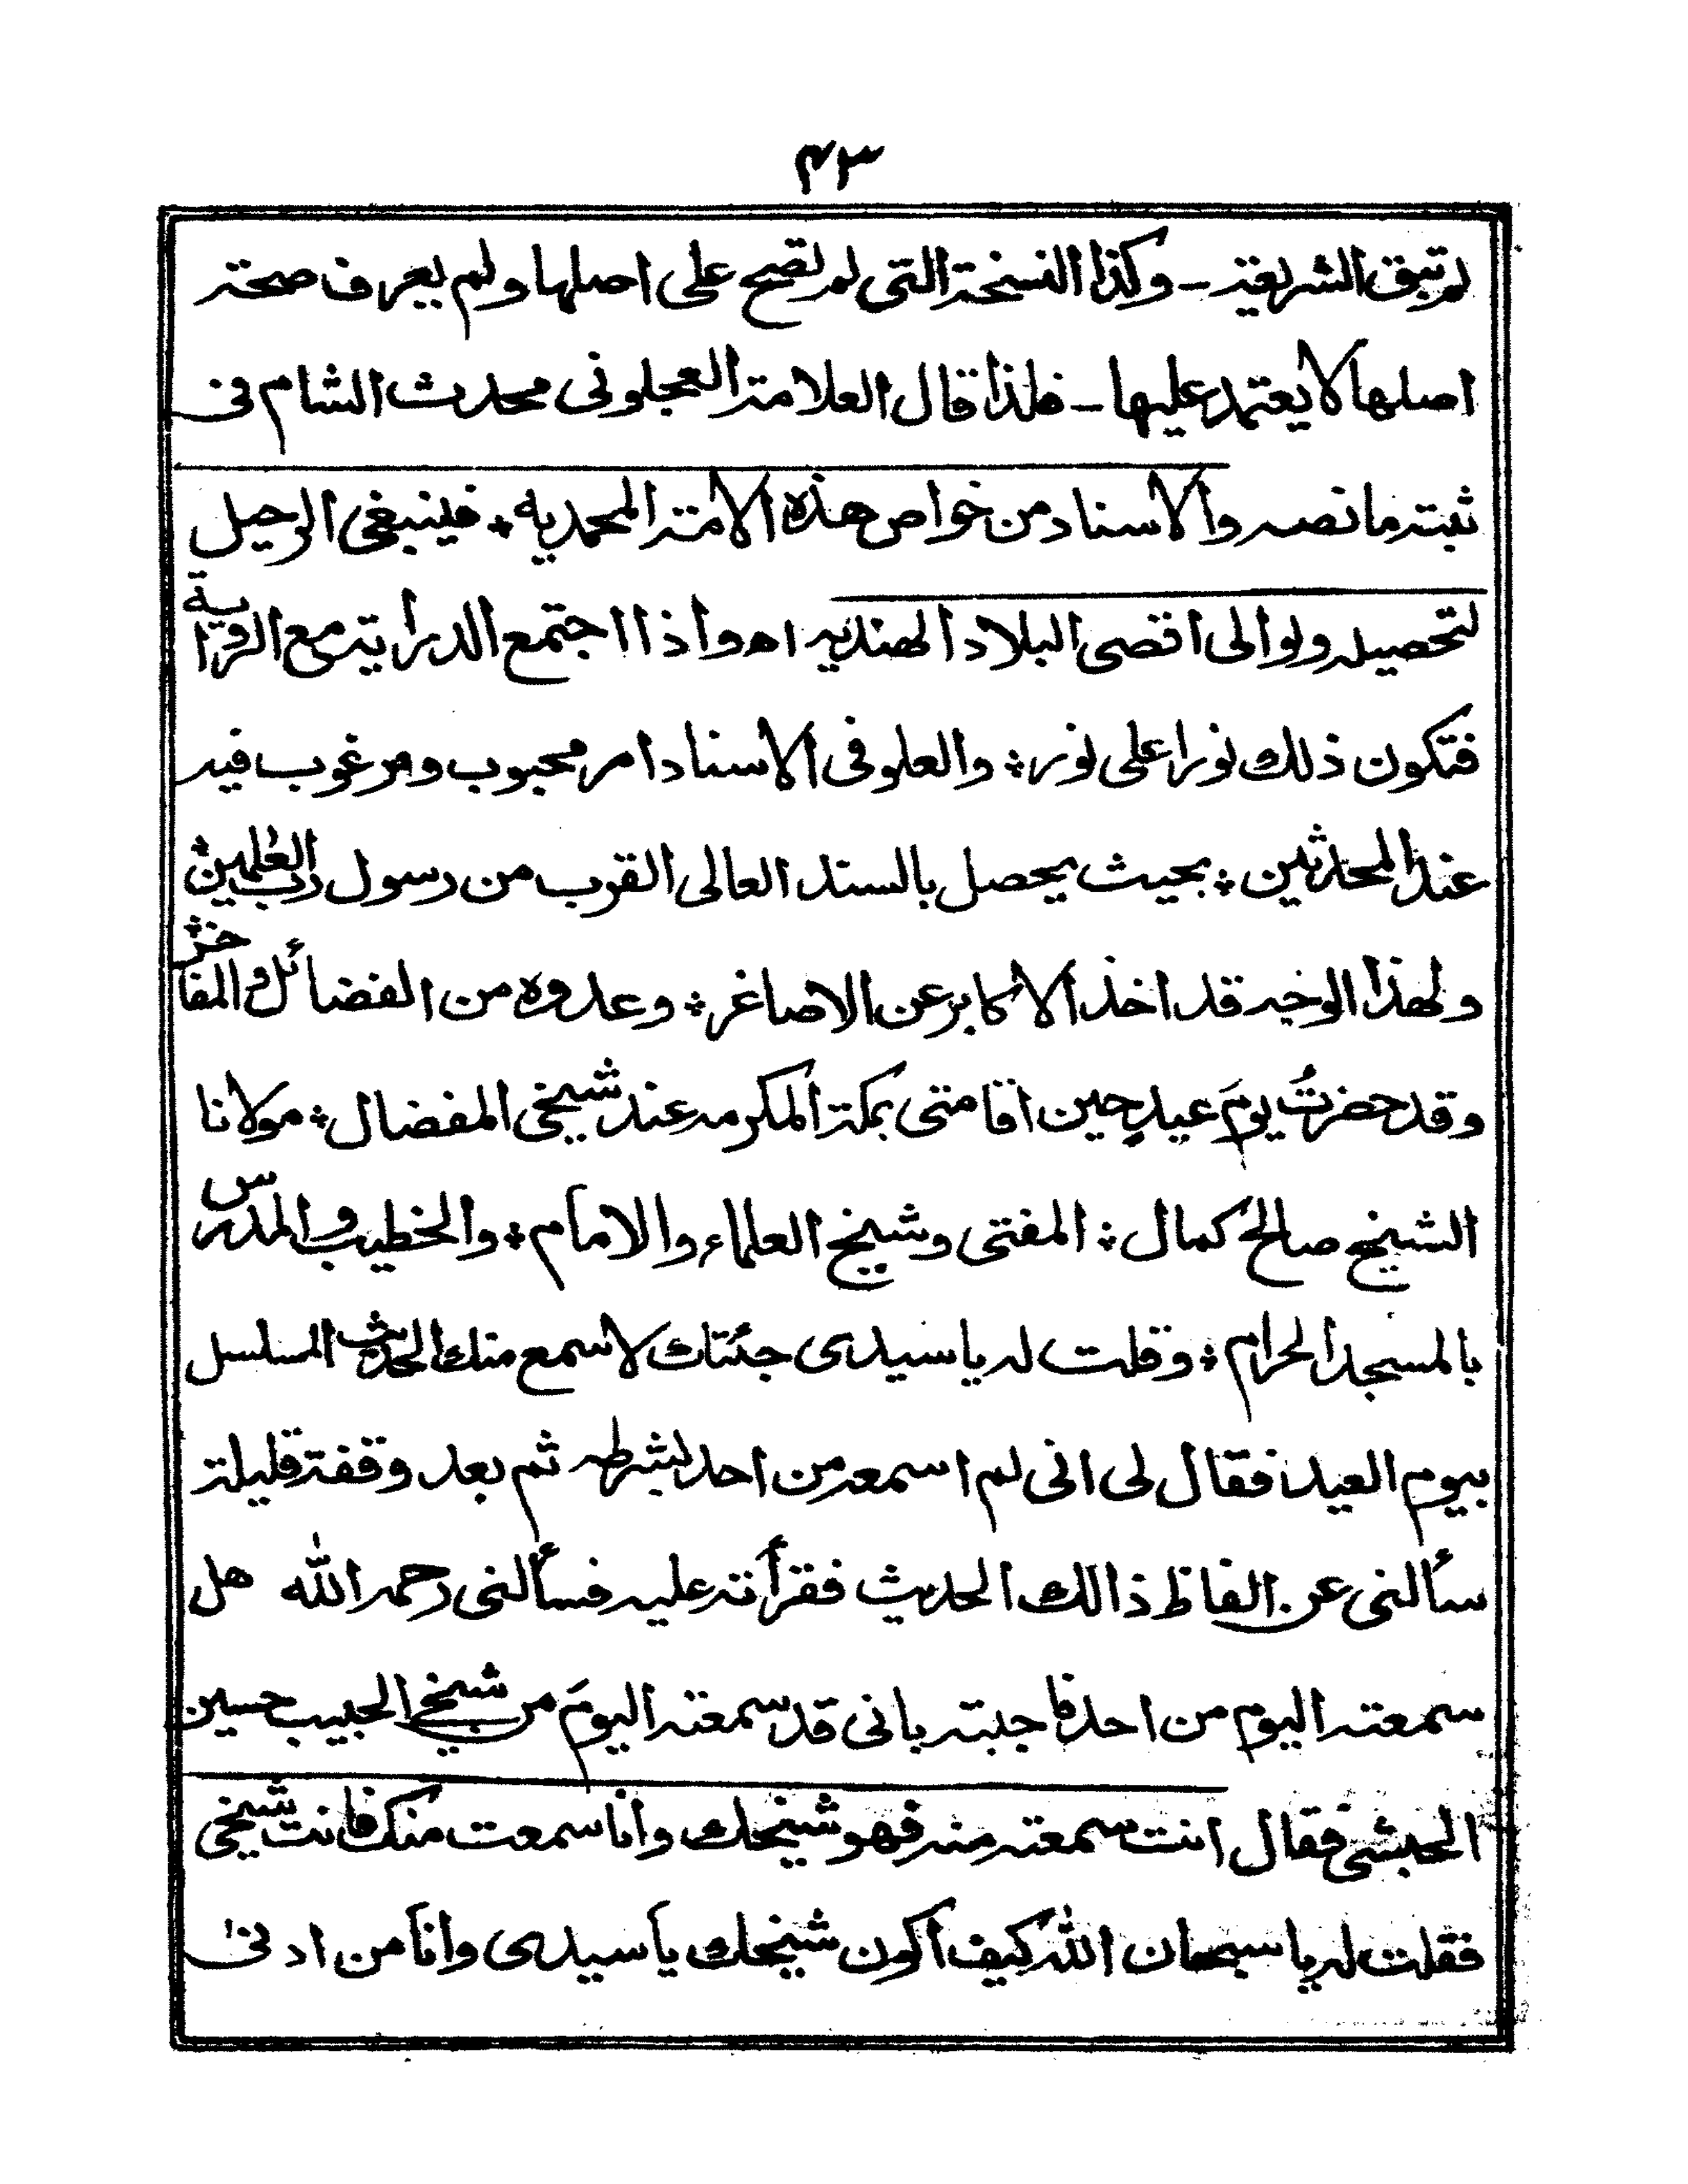 ٤٣
لم تبق الشريعة ـ وكذا النسخة التي لم تصح على اصلها ولم يعرف صحة
اصلها لا يعتمد عليها ـ فلذا قال العلامة العجلونى محدث الشام فى
ثبته ما نصه والاسناد من خواص هذه الامة المحمديه * فينبغى الرحيل
لتحصيله ولو الى اقصى البلاد الهنديه اه واذا اجتمع الدراية مع الرواية
فتكون ذلك نورا على نور * والعلو فى الاسناد امر محبوب ومرغوب فيه
عند المحدثين * بحيث يحصل بالسند العالى القرب من رسول رب العلمين *
ولهذا الوجه قد اخذ الاكابر عن الاصاغر * وعدوه من الفضائل والمفاخر *
وقد حضرتُ يومَ عيدٍ حين اقامتى بمكة المكرمه عند شيخى المفضال * مولانا
الشيخ صالح كمال * المفتى وشيخ العلماء والامام * والخطيب والمدرس
بالمسجد الحرام * وقلت له يا سيدى جئتك لاسمع منك الحديث المسلسل
بيوم العيد فقال لى انى لم اسمعه من احد بشرطه ثم بعد وقفة قليلة
سألنى عن الفاظ ذالك الحديث فقرأته عليه فسألنى رحمه الله هل
سمعته اليوم من احد فاجبته بانى قد سمعته اليومَ من شيخي الحبيب حسين
الحبشى فقال انت سمعته منه فهو شيخك وانا سمعت منك فانت شيخي
فقلت له يا سبحان الله كيف اكون شيخك يا سيدى وانا من ادنى